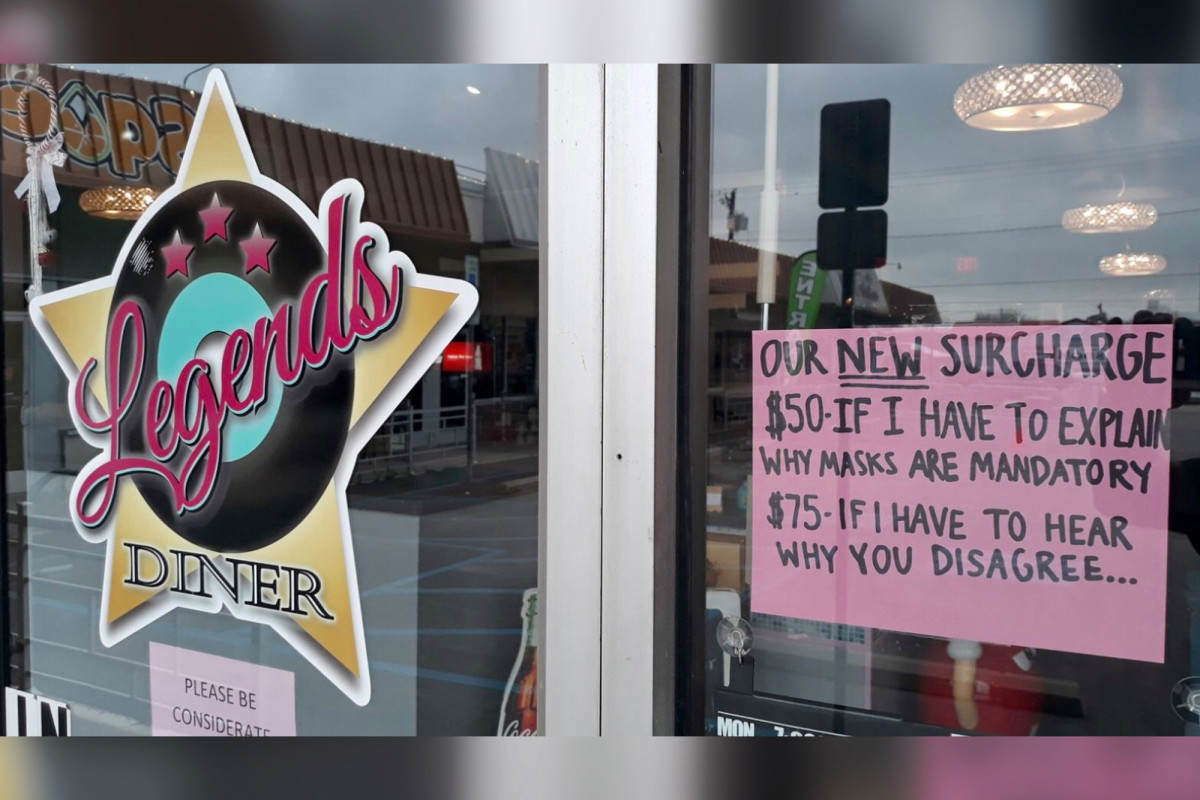 Legends
DINER
PLEASE BE
CONSIDERATE
IN
OUR NEW SURCHARGE
$50-IF I HAVE TO EXPLAIN
WHY MASKS ARE MANDATORY
$75-IF I HAVE TO HEAR
WHY YOU DISAGREE...
ENTR
EXIT
MON